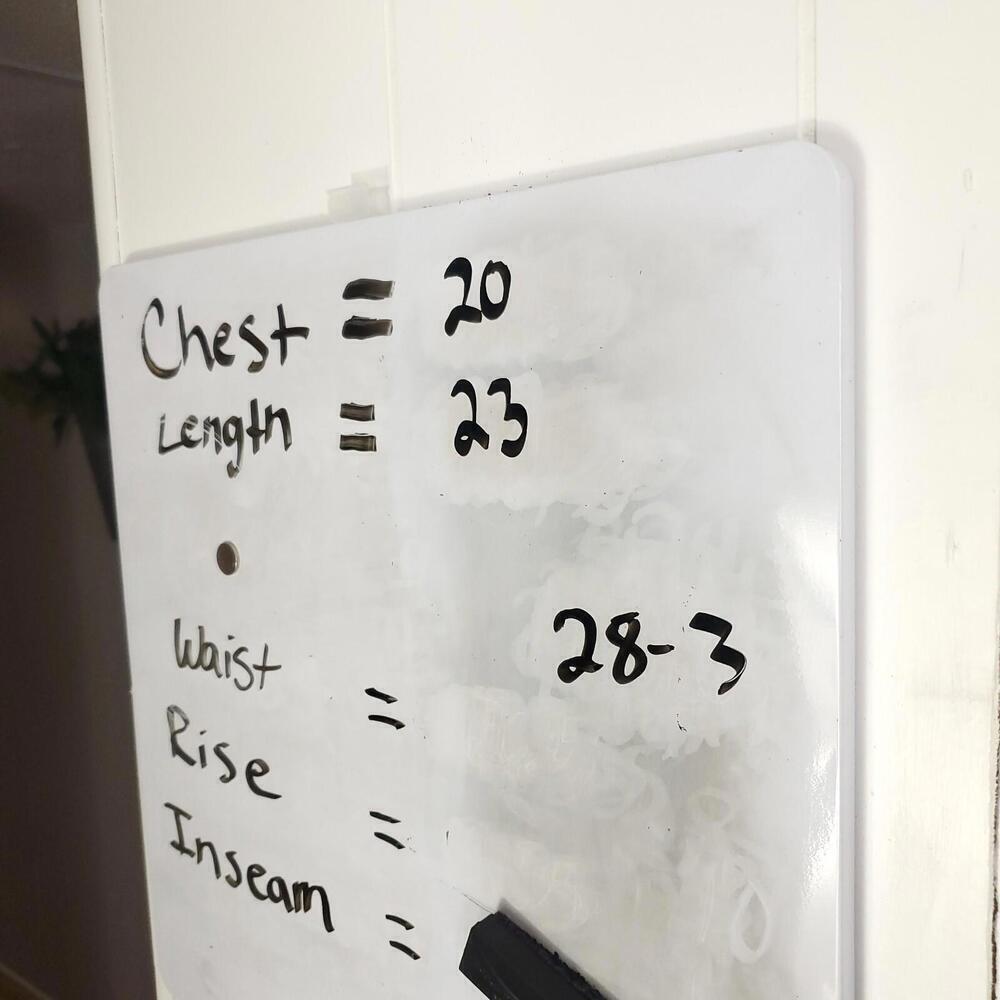 Chest = 20
Length = 23
28-3
Waist =
Rise =
Inseam =